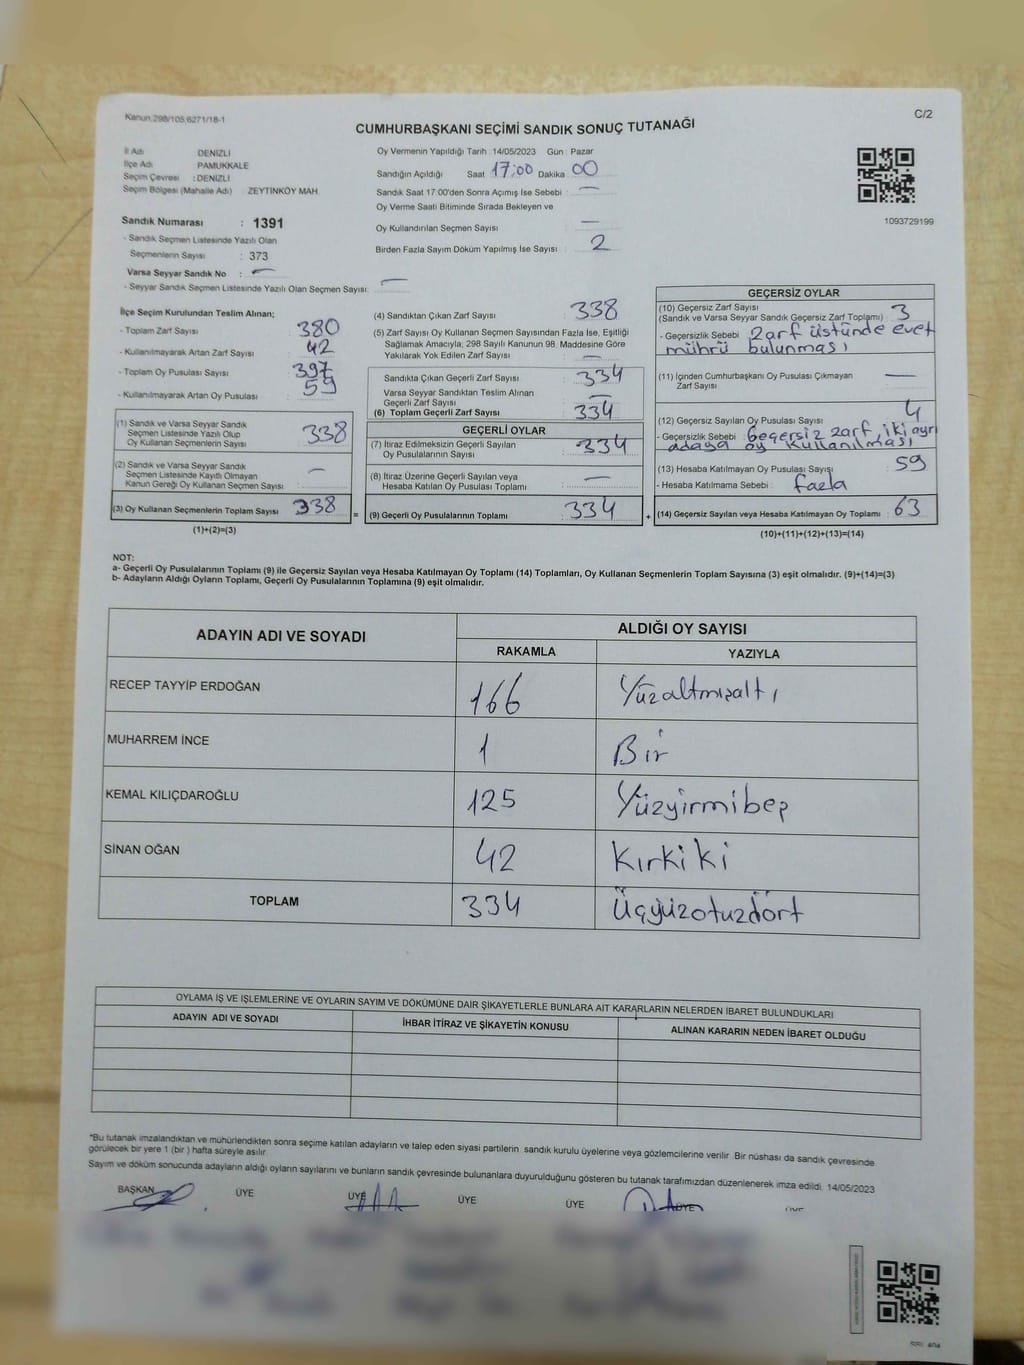 Kanun.298/105,6271/18-1
C/2
CUMHURBAŞKANI SEÇİMİ SANDIK SONUÇ TUTANAĞI
İl Adı DENİZLİ
İlçe Adı PAMUKKALE
Seçim Çevresi : DENİZLİ
Seçim Bölgesi (Mahalle Adı) : ZEYTİNKÖY MAH.
Sandık Numarası : 1391
- Sandık Seçmen Listesinde Yazılı Olan
Seçmenlerin Sayısı : 373
Varsa Seyyar Sandık No : —
- Seyyar Sandık Seçmen Listesinde Yazılı Olan Seçmen Sayısı: —
Oy Vermenin Yapıldığı Tarih : 14/05/2023 Gün : Pazar
Sandığın Açıldığı Saat 17:00 Dakika 00
Sandık Saat 17.00'den Sonra Açımış İse Sebebi : —
Oy Verme Saati Bitiminde Sırada Bekleyen ve
Oy Kullandırılan Seçmen Sayısı : —
Birden Fazla Sayım Döküm Yapılmış İse Sayısı : 2
1093729199
İlçe Seçim Kurulundan Teslim Alınan;
- Toplam Zarf Sayısı : 380
- Kullanılmayarak Artan Zarf Sayısı : 42
- Toplam Oy Pusulası Sayısı : 397
- Kullanılmayarak Artan Oy Pusulası : 59
(1) Sandık ve Varsa Seyyar Sandık
Seçmen Listesinde Yazılı Olup
Oy Kullanan Seçmenlerin Sayısı : 338
(2) Sandık ve Varsa Seyyar Sandık
Seçmen Listesinde Kayıtlı Olmayan
Kanun Gereği Oy Kullanan Seçmen Sayısı : —
(3) Oy Kullanan Seçmenlerin Toplam Sayısı : 338
(1)+(2)=(3)
(4) Sandıktan Çıkan Zarf Sayısı : 338
(5) Zarf Sayısı Oy Kullanan Seçmen Sayısından Fazla İse, Eşitliği
Sağlamak Amacıyla; 298 Sayılı Kanunun 98. Maddesine Göre
Yakılarak Yok Edilen Zarf Sayısı : —
Sandıkta Çıkan Geçerli Zarf Sayısı : 334
Varsa Seyyar Sandıktan Teslim Alınan
Geçerli Zarf Sayısı : —
(6) Toplam Geçerli Zarf Sayısı : 334
GEÇERLİ OYLAR
(7) İtiraz Edilmeksizin Geçerli Sayılan
Oy Pusulalarının Sayısı : 334
(8) İtiraz Üzerine Geçerli Sayılan veya
Hesaba Katılan Oy Pusulası Toplamı : —
= (9) Geçerli Oy Pusulalarının Toplamı : 334 +
GEÇERSİZ OYLAR
(10) Geçersiz Zarf Sayısı
(Sandık ve Varsa Seyyar Sandık Geçersiz Zarf Toplamı) : 3
- Geçersizlik Sebebi : Zarf üstünde evet
mührü bulunması
(11) İçinden Cumhurbaşkanı Oy Pusulası Çıkmayan
Zarf Sayısı : —
(12) Geçersiz Sayılan Oy Pusulası Sayısı : 4
- Geçersizlik Sebebi : Geçersiz zarf, iki ayrı
adaya oy kullanılması
(13) Hesaba Katılmayan Oy Pusulası Sayısı : 59
- Hesaba Katılmama Sebebi : fazla
(14) Geçersiz Sayılan veya Hesaba Katılmayan Oy Toplamı : 63
(10)+(11)+(12)+(13)=(14)
NOT:
a- Geçerli Oy Pusulalarının Toplamı (9) ile Geçersiz Sayılan veya Hesaba Katılmayan Oy Toplamı (14) Toplamları, Oy Kullanan Seçmenlerin Toplam Sayısına (3) eşit olmalıdır. (9)+(14)=(3)
b- Adayların Aldığı Oyların Toplamı, Geçerli Oy Pusulalarının Toplamına (9) eşit olmalıdır.
ADAYIN ADI VE SOYADI ALDIĞI OY SAYISI
RAKAMLA YAZIYLA
RECEP TAYYİP ERDOĞAN 166 Yüzaltmışaltı
MUHARREM İNCE 1 Bir
KEMAL KILIÇDAROĞLU 125 Yüzyirmibeş
SİNAN OĞAN 42 Kırkiki
TOPLAM 334 Üçyüzotuzdört
OYLAMA İŞ VE İŞLEMLERİNE VE OYLARIN SAYIM VE DÖKÜMÜNE DAİR ŞİKAYETLERLE BUNLARA AİT KARARLARIN NELERDEN İBARET BULUNDUKLARI
ADAYIN ADI VE SOYADI İHBAR İTİRAZ VE ŞİKAYETİN KONUSU ALINAN KARARIN NEDEN İBARET OLDUĞU
*Bu tutanak imzalandıktan ve mühürlendikten sonra seçime katılan adayların ve talep eden siyasi partilerin sandık kurulu üyelerine veya gözlemcilerine verilir. Bir nüshası da sandık çevresinde
görülecek bir yere 1 (bir ) hafta süreyle asılır.
Sayım ve döküm sonucunda adayların aldığı oyların sayılarını ve bunların sandık çevresinde bulunanlara duyurulduğunu gösteren bu tutanak tarafımızdan düzenlenerek imza edildi. 14/05/2023
BAŞKAN ÜYE ÜYE ÜYE ÜYE ÜYE ÜYE